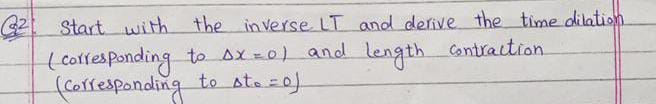 Q2: Start with the inverse LT and derive the time dilation
(corresponding to Δx = 0) and length contraction
(corresponding to Δt₀ = 0)